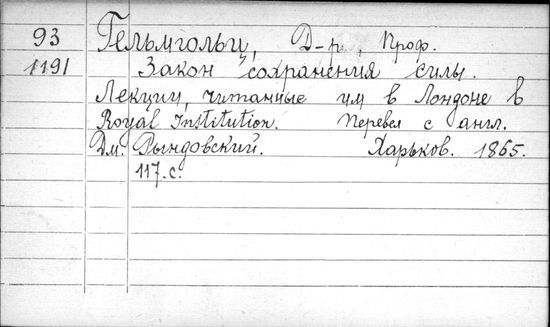 93 Гельмгольц, Д-ръ, Проф.
1191 Закон сохранения силы.
Лекции, читанные им в Лондоне в
Royal Institution. Перевел с англ.
Дм. Рындовский. Харьков. 1865.
117. с.